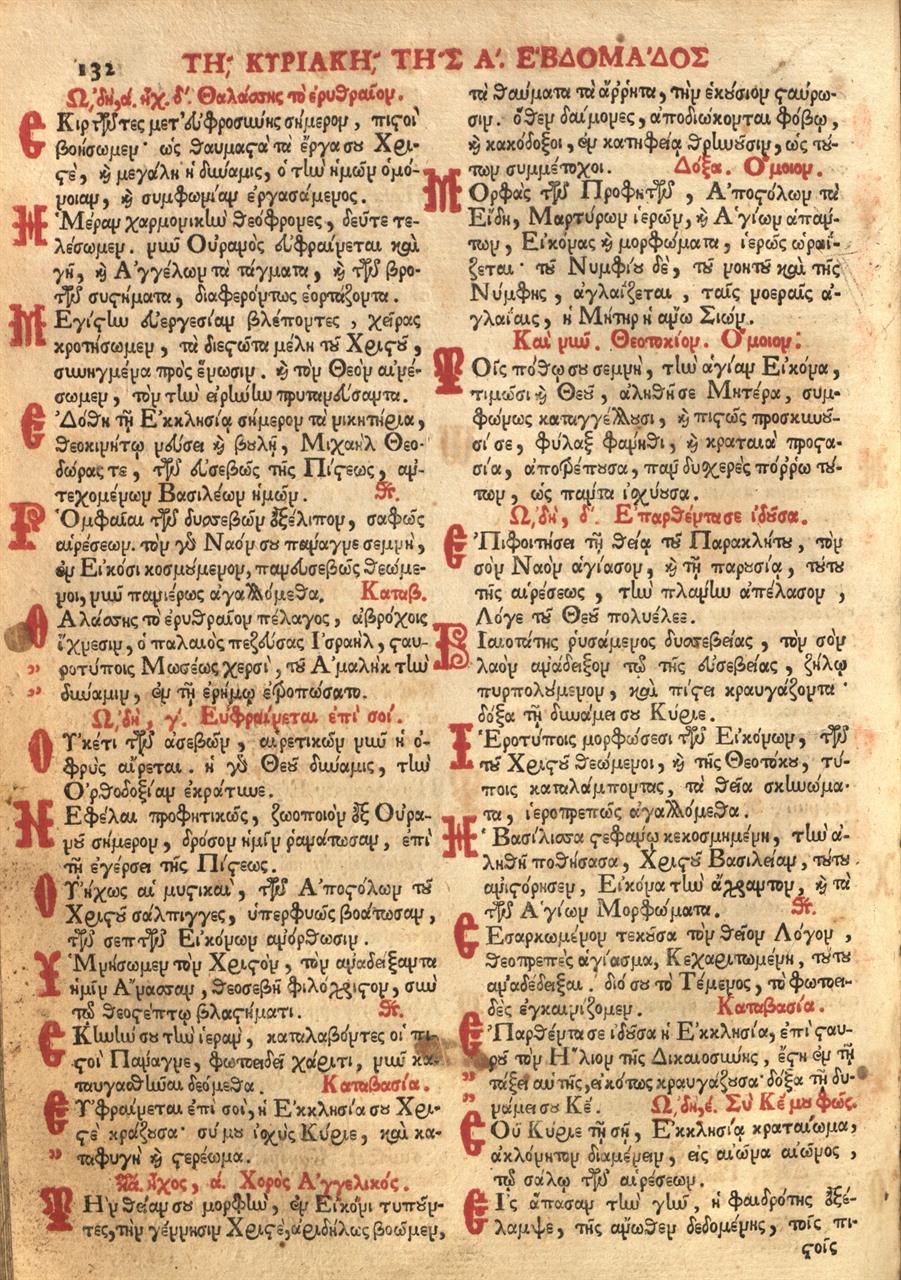 132 ΤΗ͂, ΚΥΡΙΑΚΗ͂, ΤΗ͂Σ Α΄. Ε῾ΒΔΟΜΑ΄ΔΟΣ
Ὠδὴ, ά. ἦχ. δ΄. Θαλάσσης τὸ ἐρυθραῖον.
ΣΚιρτῶντες μετ᾿ εὐφροσύνης σήμερον, πιςοὶ
βοήσωμεν· ὡς θαυμαςὰ τὰ ἔργα σου Χρι-
ςὲ, καὶ μεγάλη ἡ δύναμις, ὁ τὴν ἡμῶν ὁμό-
νοιαν, καὶ συμφωνίαν ἐργασάμενος.
Ἡμέραν χαρμονικὴν θεόφρονες, δεῦτε τε-
λέσωμεν. νῦν Οὐρανὸς εὐφραίνεται καὶ
γῆ, καὶ Ἀγγέλων τὰ τάγματα, καὶ τῶν βρο-
τῶν συςήματα, διαφερόντως ἑορτάζοντα.
ΜΕγίςην εὐεργεσίαν βλέποντες, χεῖρας
κροτήσωμεν, τὰ διεςῶτα μέλη τοῦ Χριςοῦ,
συνηγμένα πρὸς ἕνωσιν. καὶ τὸν Θεὸν αἰνέ-
σωμεν, τὸν τὴν εἰρήνην πρυτανεύσαντα.
ΕΔόθη τῇ Ἐκκλησίᾳ σήμερον τὰ νικητήρια,
θεοκινήτῳ νεύσει καὶ βουλῇ, Μιχαὴλ Θεο-
δώρας τε, τῶν εὐσεβῶς τῆς Πίςεως, ἀν-
τεχομένων Βασιλέων ἡμῶν. Θκ.
ῬΟμφαῖαι τῶν δυσσεβῶν ἐξέλιπον, σαφῶς
αἱρέσεων. τὸν γὰρ Ναόν σου πάναγνε σεμνὴ,
ἐν Εἰκόσι κοσμούμενον, πανευσεβῶς θεώμε-
νοι, νῦν πανιέρως ἀγαλλόμεθα. Καταβ.
ΘΑλάσσης τὸ ἐρυθραῖον πέλαγος, ἀβρόχοις
„ ἴχνεσιν, ὁ παλαιὸς πεζεύσας Ἰσραὴλ, ςαυ-
„ ροτύποις Μωσέως χερσὶ, τοῦ Ἀμαλὴκ τὴν
„ δύναμιν, ἐν τῇ ἐρήμῳ ἐτροπώσατο.
Ὠδὴ, γ΄. Εὐφραίνεται ἐπὶ σοί.
ΟΥκέτι τῶν ἀσεβῶν, αἱρετικῶν νῦν ἡ ὀ-
φρὺς αἴρεται. ἡ γὰρ Θεοῦ δύναμις, τὴν
Ὀρθοδοξίαν ἐκράτυνε.
ΝΕφέλαι προφητικῶς, ζωοποιὸν ἐξ Οὐρα-
νοῦ σήμερον, δρόσον ἡμῖν ῥανάτωσαν, ἐπὶ
τῇ ἐγέρσει τῆς Πίςεως.
ΟΥἦχως αἱ μυςικαὶ, τῶν Ἀποςόλων τοῦ
Χριςοῦ σάλπιγγες, ὑπερφυῶς βοάτωσαν,
τῶν σεπτῶν Εἰκόνων ἀνόρθωσιν.
ὙΜνήσωμεν τὸν Χριςὸν, τὸν ἀναδείξαντα
ἡμῖν Ἄνασσαν, θεοσεβῆ φιλόχριςον, σὺν
τῷ θεοςέπτῳ βλαςήματι. Θκ.
ΣΚηνήν σου τὴν ἱερὰν, καταλαβόντες οἱ πι-
ςοὶ Πάναγνε, φωτοειδεῖ χάριτι, νῦν κα-
ταυγασθῆναι δεόμεθα. Καταβασία.
ΕΥφραίνεται ἐπὶ σοὶ, ἡ Ἐκκλησία σου Χρι-
ςὲ κράζουσα· σύ μου ἰσχὺς Κύριε, καὶ κα-
„ ταφυγὴ καὶ ςερέωμα.
Κά. ἦχος, ά. Χορὸς Ἀγγελικός.
ΤΗν θείαν σου μορφὴν, ἐν Εἰκόνι τυποῦν-
τες, τὴν γέννησιν Χριςὲ, ἀριδήλως βοῶμεν,
τὰ θαύματα τὰ ἄρρητα, τὴν ἑκούσιον ςαύρω-
σιν. ὅθεν δαίμονες, ἀποδιώκονται φόβῳ,
καὶ κακόδοξοι, ἐν κατηφείᾳ θρηνοῦσιν, ὡς τού-
των συμμέτοχοι. Δόξα. Ὅμοιον.
ΜΟρφὰς τῶν Προφητῶν, Ἀποςόλων τὰ
Εἴδη, Μαρτύρων ἱερῶν, καὶ Ἁγίων ἁπάν-
των, Εἰκόνας καὶ μορφώματα, ἱερῶς ὡραΐ-
ζεται· τοῦ Νυμφίου δὲ, τοῦ νοητοῦ καὶ τῆς
Νύμφης, ἀγλαΐζεται, ταῖς νοεραῖς ἀ-
γλαΐαις, ἡ Μήτηρ ἡ ἄνω Σιών.
Καὶ νῦν. Θεοτοκίον. Ὅμοιον:
ΤΟῖς πόθῳ σου σεμνὴ, τὴν ἁγίαν Εἰκόνα,
τιμῶσι καὶ Θεοῦ, ἀληθῆ σε Μητέρα, συμ-
φώνως καταγγέλλουσι, καὶ πιςῶς προσκυνοῦ-
σί σε, φύλαξ φάνηθι, καὶ κραταιὰ προςα-
σία, ἀποτρέπουσα, πᾶν δυχερὲς πόρρω τού-
των, ὡς πάντα ἰσχύουσα.
Ὠδὴ, δ΄. Ἐπαρθέντα σε ἰδοῦσα.
ἘΠιφοιτήσει τῇ θείᾳ τοῦ Παρακλήτου, τὸν
σὸν Ναὸν ἁγίασον, καὶ τῇ παρουσίᾳ, τούτου
τῆς αἱρέσεως, τὴν πλάνην ἀπέλασον,
Λόγε τοῦ Θεοῦ πολυέλεε.
ΒΙαιοτάτης ῥυσάμενος δυσσεβείας, τὸν σὸν
λαὸν ἀνάδειξον τῷ τῆς εὐσεβείας, ζήλῳ
πυρπολούμενον, καὶ πίςει κραυγάζοντα·
δόξα τῇ δυνάμει σου Κύριε.
ἹΕροτύποις μορφώσεσι τῶν Εἰκόνων, τῶν
τοῦ Χριςοῦ θεώμενοι, καὶ τῆς Θεοτόκου, τύ-
ποις καταλάμποντας, τὰ θεῖα σκηνώμα-
τα, ἱεροπρεπῶς ἀγαλλόμεθα.
Ἡ Βασίλισσα ςεφάνῳ κεκοσμημένη, τὴν ἀ-
ληθῆ ποθήσασα, Χριςοῦ Βασιλείαν, τούτου
ἀνιςόρησεν, Εἰκόνα τὴν ἄχραντον, καὶ τὰ
τῶν Ἁγίων Μορφώματα. Θκ.
ΣΕσαρκωμένον τεκοῦσα τὸν θεῖον Λόγον,
θεοπρεπὲς ἁγίασμα, Κεχαριτωμένη, τούτου
ἀναδέδειξαι. διό σου τὸ Τέμενος, τὸ φωτοει-
δὲς ἐγκαινίζομεν. Καταβασία.
ἘΠαρθέντα σε ἰδοῦσα ἡ Ἐκκλησία, ἐπὶ ςαυ-
„ ροῦ τὸν Ἥλιον τῆς Δικαιοσύνης, ἔςη ἐν τῇ
„ τάξει αὐτῆς, εἰκότως κραυγάζουσα· δόξα τῇ δυ-
„ νάμει σου Κέ. Ὠδὴ, έ. Σὺ Κέ μου φῶς.
ΣΟῦ Κύριε τῇ σῇ, Ἐκκλησίᾳ κραταίωμα,
ἀκλόνητον διαμένειν, εἰς αἰῶνα αἰῶνος,
τῷ σάλῳ τῶν αἱρέσεων.
ΕἸς ἅπασαν τὴν γῆν, ἡ φαιδρότης ἐξέ-
λαμψε, τῆς ἄνωθεν δεδομένης, τοῖς πι-
ςοῖς